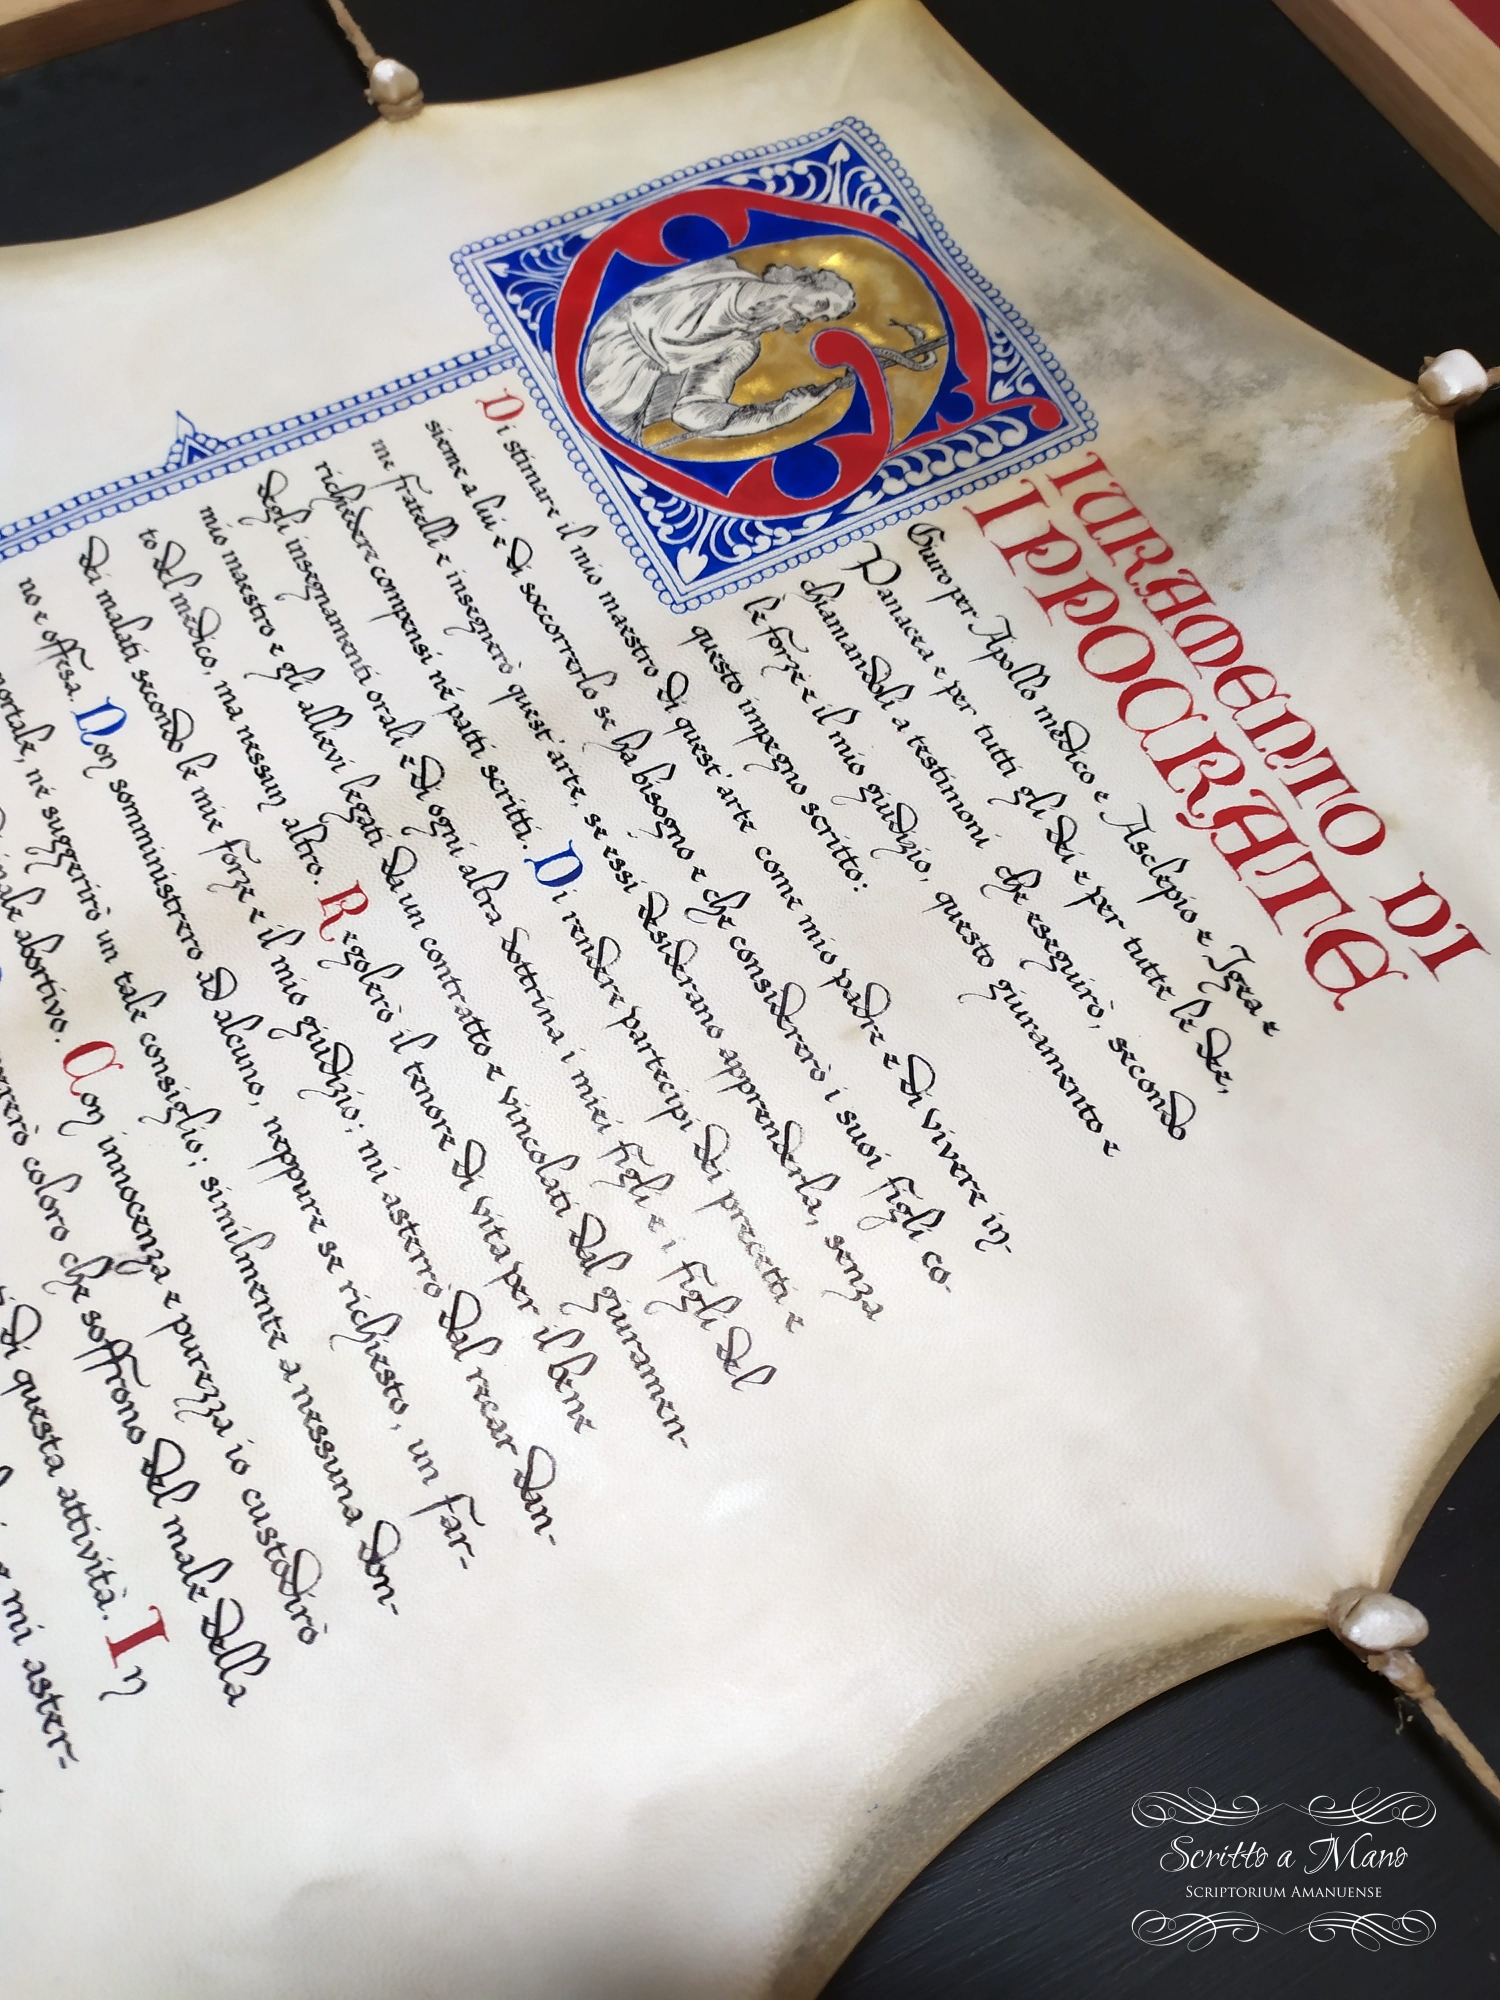 GIURAMENTO DI
IPPOCRATE
Giuro per Apollo medico e Asclepio e Igea e
Panacea e per tutti gli dei e per tutte le dee,
chiamandoli a testimoni che eseguirò, secondo
le forze e il mio giudizio, questo giuramento e
questo impegno scritto:
Di stimare il mio maestro di quest'arte come mio padre e di vivere in-
sieme a lui e di soccorrerlo se ha bisogno e che considererò i suoi figli co-
me fratelli e insegnerò quest'arte, se essi desiderano apprenderla, senza
richiedere compensi né patti scritti. Di rendere partecipi dei precetti e
degli insegnamenti orali e di ogni altra dottrina i miei figli e i figli del
mio maestro e gli allievi legati da un contratto e vincolati dal giuramen-
to del medico, ma nessun altro. Regolerò il tenore di vita per il bene
dei malati secondo le mie forze e il mio giudizio; mi asterrò dal recar dan-
no e offesa. Non somministrerò ad alcuno, neppure se richiesto, un far-
mortale, né suggerirò un tale consiglio; similmente a nessuna don-
abortivo. Con innocenza e purezza io custodirò
coloro che soffrono del male della
di questa attività. In
mi aster-
Scritto a Mano
Scriptorium Amanuense